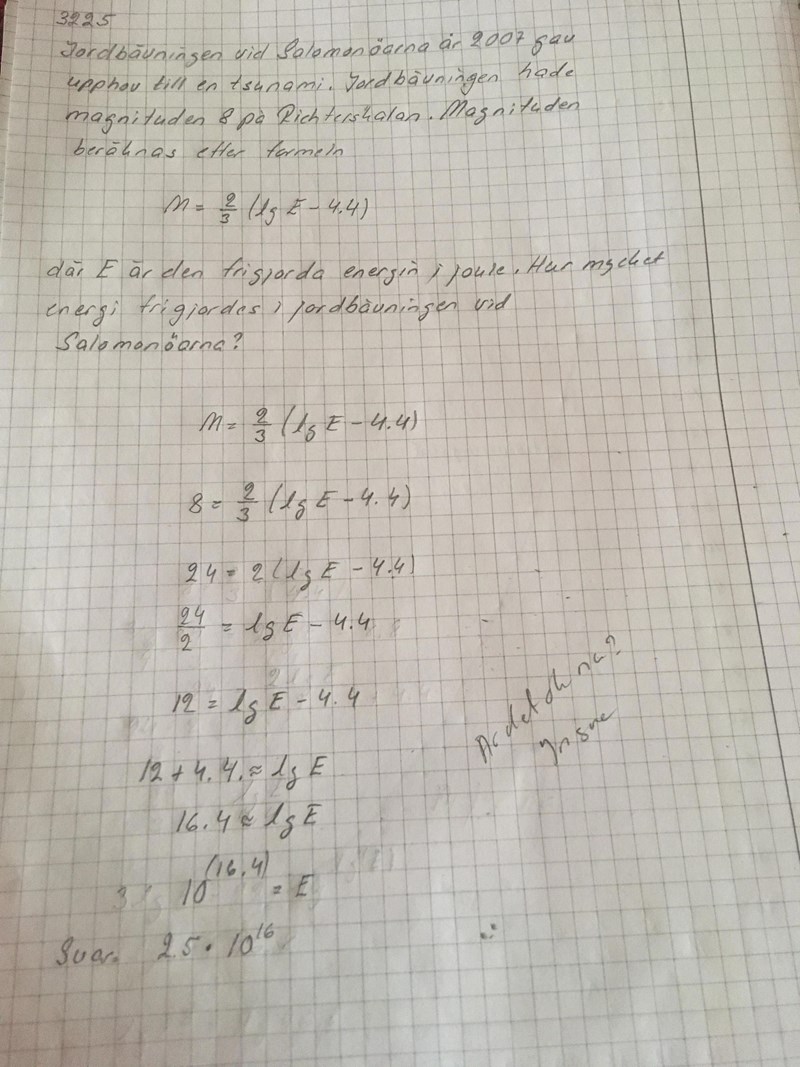 3225
Jordbävningen vid Salomonöarna år 2007 gav
upphov till en tsunami. Jordbävningen hade
magnituden 8 på Richterskalan. Magnituden
beräknas efter formeln
M = 2/3 (lg E - 4.4)
där E är den frigjorda energin i joule. Hur mycket
energi frigjordes i jordbävningen vid
Salomonöarna?
M = 2/3 (lg E - 4.4)
8 = 2/3 (lg E - 4.4)
24 = 2 (lg E - 4.4)
24/2 = lg E - 4.4
12 = lg E - 4.4
12 + 4.4. ≈ lg E
16.4 ≈ lg E
10^(16.4) = E
Svar. 25 · 10^16
Är det